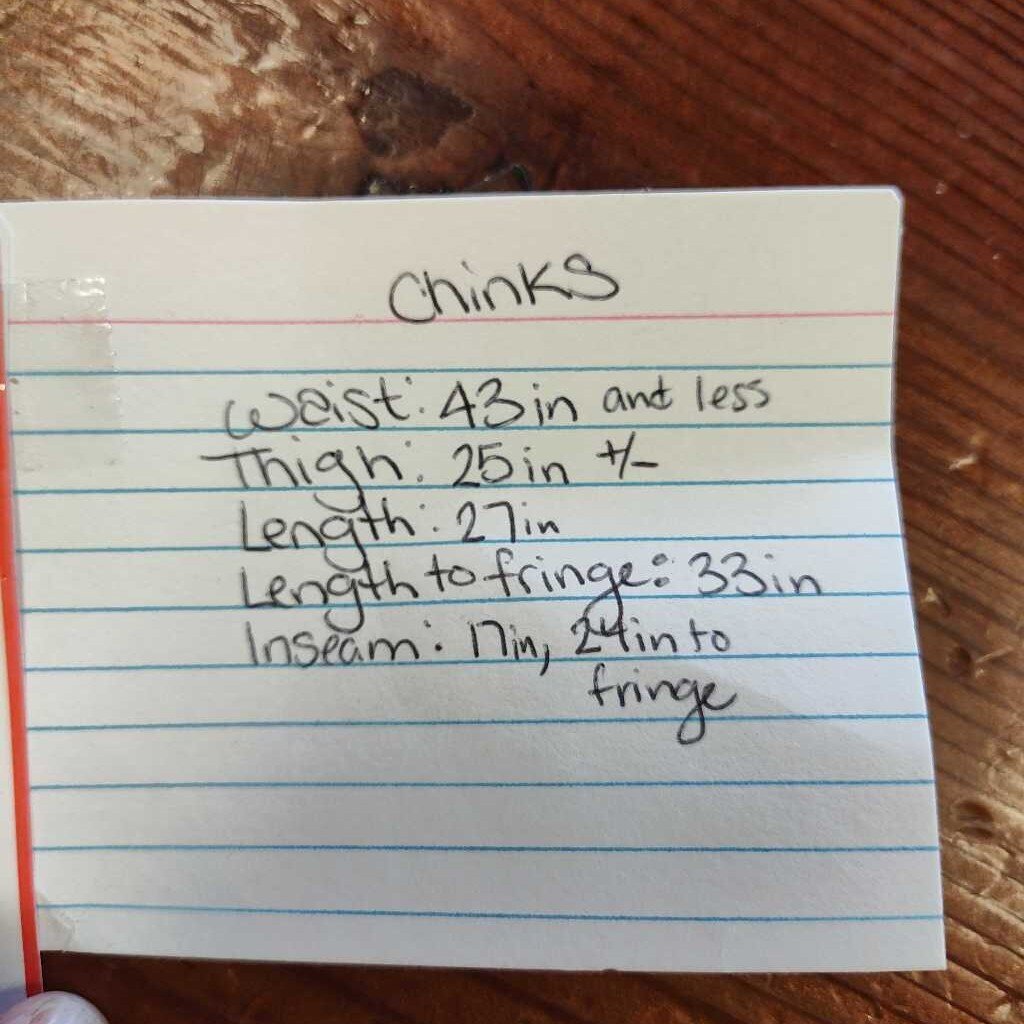 Chinks
Waist: 43in and less
Thigh: 25in +/-
Length: 27in
Length to fringe: 33in
Inseam: 17in, 24in to
fringe